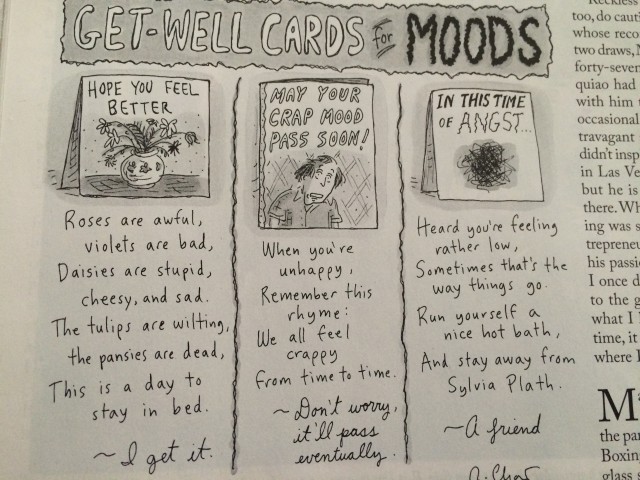 GET-WELL CARDS for MOODS
HOPE YOU FEEL
BETTER
Roses are awful,
violets are bad,
Daisies are stupid,
cheesy, and sad.
The tulips are wilting,
the pansies are dead,
This is a day to
stay in bed.
~ I get it.
MAY YOUR
CRAP MOOD
PASS SOON!
When you're
unhappy,
Remember this
rhyme:
We all feel
crappy
From time to time.
~ Don't worry,
it'll pass
eventually.
IN THIS TIME
OF ANGST...
Heard you're feeling
rather low,
Sometimes that's the
way things go.
Run yourself a
nice hot bath,
And stay away from
Sylvia Plath.
~ A friend
too, do
whose
two draws,
forty-seven
quiao had
with him
occasional
travagant
didn't
in Las
but he is
there.
ing was
his
I once
to the
what I
time, it
where
the
glass